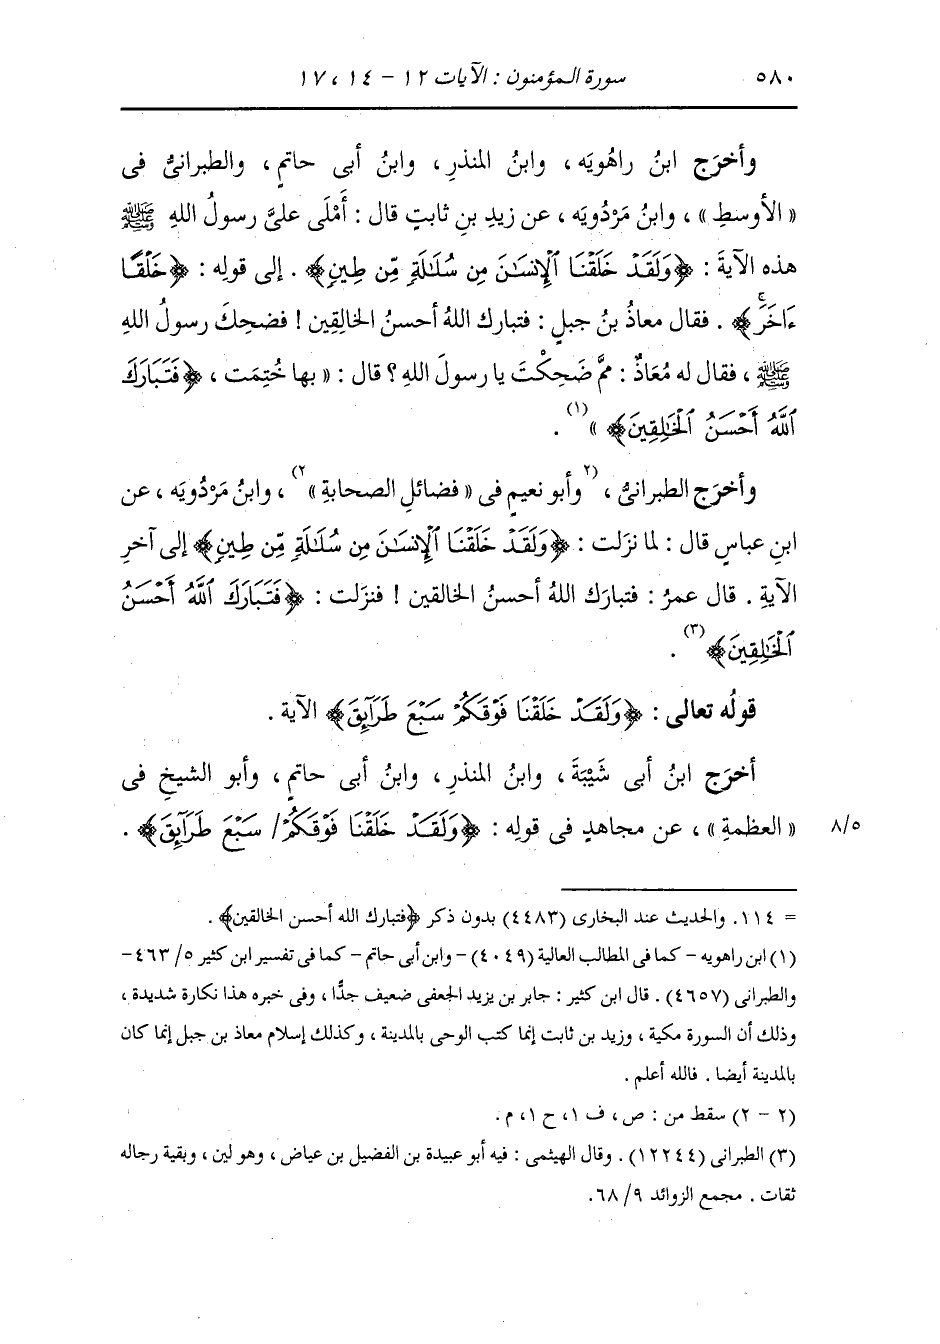 ٥٨٠ سورة المؤمنون : الآيات ١٢ - ١٤ ، ١٧
وأخرَج ابنُ راهُويَه ، وابنُ المنذرِ ، وابنُ أبى حاتمٍ ، والطبرانىُّ فى
« الأوسطِ » ، وابنُ مَرْدُويَه ، عن زيدِ بنِ ثابتٍ قال : أَمْلَى علىَّ رسولُ اللهِ ﷺ
هذه الآيةَ : ﴿وَلَقَدْ خَلَقْنَا ٱلْإِنسَـٰنَ مِن سُلَـٰلَةٍ مِّن طِينٍ﴾ . إلى قولِه : ﴿خَلْقًا
ءَاخَرَۚ﴾ . فقال معاذُ بنُ جبلٍ : فتبارك اللهُ أحسنُ الخالِقِين ! فضحِك رسولُ اللهِ
ﷺ ، فقال له مُعَاذٌ : مِمَّ ضَحِكْتَ يا رسولَ اللهِ ؟ قال : « بها خُتِمَت ، ﴿فَتَبَارَكَ
ٱللَّهُ أَحْسَنُ ٱلْخَـٰلِقِينَ﴾ »(١) .
وأخرَج الطبرانىُّ ، (٢وأبو نعيمٍ فى « فضائلِ الصحابةِ »٢) ، وابنُ مَرْدُويَه ، عن
ابنِ عباسٍ قال : لما نزَلت : ﴿وَلَقَدْ خَلَقْنَا ٱلْإِنسَـٰنَ مِن سُلَـٰلَةٍ مِّن طِينٍ﴾ إلى آخرِ
الآيةِ . قال عمرُ : فتبارَك اللهُ أحسنُ الخالقين ! فنزَلت : ﴿فَتَبَارَكَ ٱللَّهُ أَحْسَنُ
ٱلْخَـٰلِقِينَ﴾(٣) .
قولُه تعالى : ﴿وَلَقَدْ خَلَقْنَا فَوْقَكُمْ سَبْعَ طَرَآئِقَ﴾ الآية .
أخرَج ابنُ أبى شَيْبَةَ ، وابنُ المنذرِ ، وابنُ أبى حاتمٍ ، وأبو الشيخِ فى
« العظمةِ » ، عن مجاهدٍ فى قولِه : ﴿وَلَقَدْ خَلَقْنَا فَوْقَكُمْ/ سَبْعَ طَرَآئِقَ﴾ . ٨/٥
= ١١٤. والحديث عند البخارى (٤٤٨٣) بدون ذكر ﴿فتبارك الله أحسن الخالقين﴾ .
(١) ابن راهويه - كما فى المطالب العالية (٤٠٤٩) - وابن أبى حاتم - كما فى تفسير ابن كثير ٥/ ٤٦٣ -
والطبرانى (٤٦٥٧) . قال ابن كثير : جابر بن يزيد الجعفى ضعيف جدًّا ، وفى خبره هذا نكارة شديدة ،
وذلك أن السورة مكية ، وزيد بن ثابت إنما كتب الوحى بالمدينة ، وكذلك إسلام معاذ بن جبل إنما كان
بالمدينة أيضا . فالله أعلم .
(٢ - ٢) سقط من : ص ، ف ١، ح ١، م .
(٣) الطبرانى (١٢٢٤٤) . وقال الهيثمى : فيه أبو عبيدة بن الفضيل بن عياض ، وهو لين ، وبقية رجاله
ثقات . مجمع الزوائد ٩/ ٦٨.